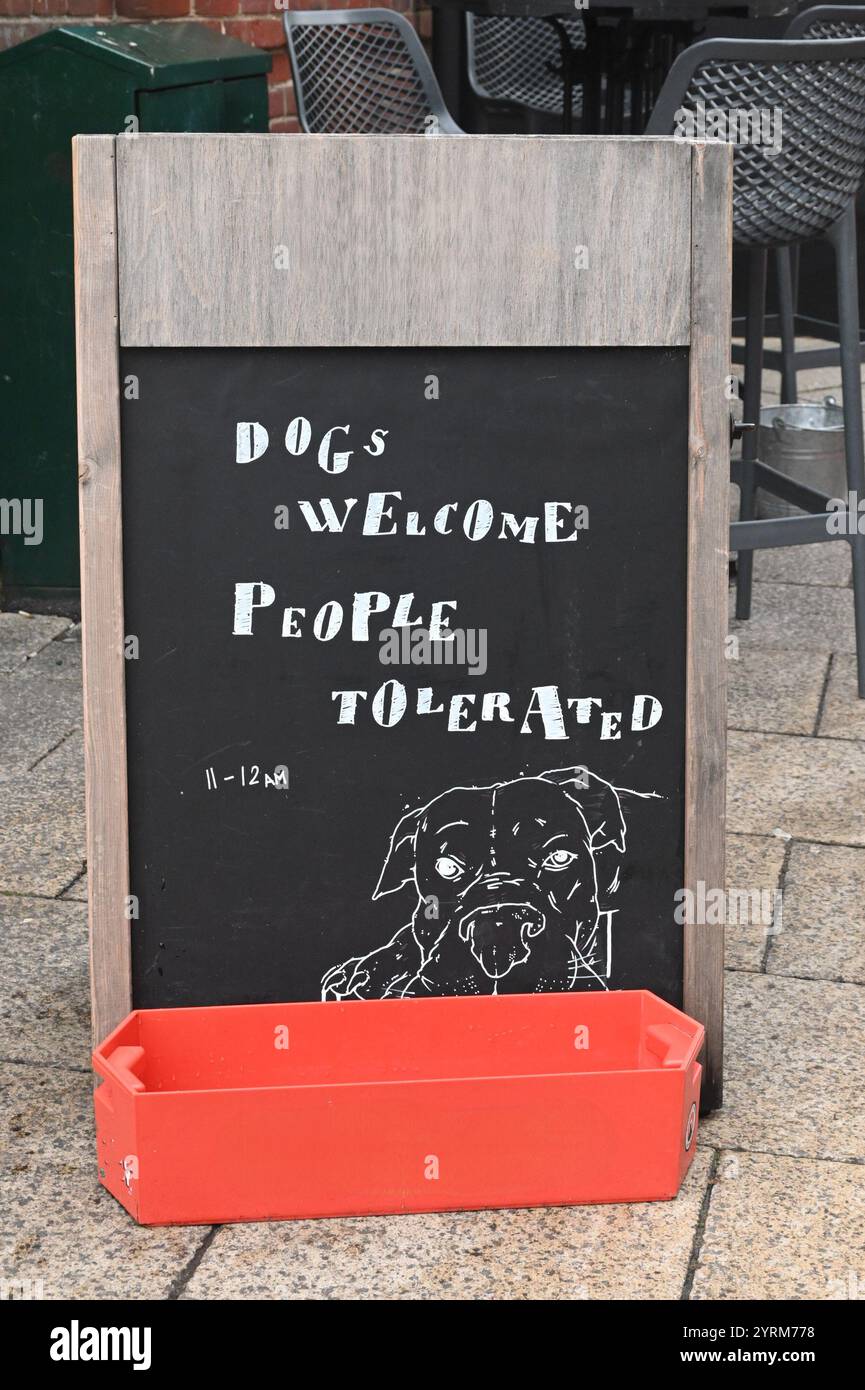 DOGS
WELCOME
PEOPLE
TOLERATED
11-12AM
alamy
Image ID: 2YRM778
www.alamy.com